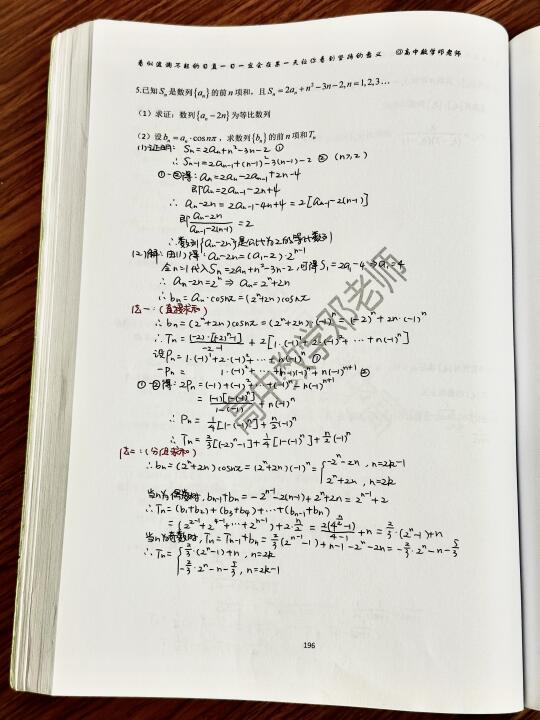 看似波澜不惊的日复一日一定会在某一天让你看到坚持的意义 @高中数学邓老师
5.已知Sₙ是数列{aₙ}的前n项和，且Sₙ=2aₙ+n²−3n−2,n=1,2,3…
（1）求证：数列{aₙ−2n}为等比数列
（2）设bₙ=aₙ·cosnπ，求数列{bₙ}的前n项和Tₙ
(1)证明: Sₙ=2aₙ+n²-3n-2 ①
∴ Sₙ₋₁=2aₙ₋₁+(n-1)²-3(n-1)-2 ② (n≥2)
①-②得: aₙ=2aₙ-2aₙ₋₁+2n-4
即aₙ=2aₙ₋₁-2n+4
∴ aₙ-2n=2aₙ₋₁-4n+4=2[aₙ₋₁-2(n-1)]
即 (aₙ-2n)/(aₙ₋₁-2(n-1)) =2
∴数列{aₙ-2n}是公比为2的等比数列
(2)解: 由(1)得: aₙ-2n=(a₁-2)·2ⁿ⁻¹
令n=1代入Sₙ=2aₙ+n²-3n-2,可得S₁=2a₁-4⇒a₁=4
∴ aₙ-2n=2ⁿ ⇒ aₙ=2ⁿ+2n
∴ bₙ=aₙ·cosnπ=(2ⁿ+2n)cosnπ
法一:(直接求和)
∴ bₙ=(2ⁿ+2n)cosnπ=(2ⁿ+2n)·(-1)ⁿ=(-2)ⁿ+2n·(-1)ⁿ
∴Tₙ= (-2)·[(-2)ⁿ-1]/(-2-1) + 2[1·(-1)¹+2·(-1)²+…+n(-1)ⁿ]
设Pₙ=1·(-1)¹+2·(-1)²+…+n(-1)ⁿ ①
-Pₙ= 1·(-1)²+…+(n-1)(-1)ⁿ+n(-1)ⁿ⁺¹ ②
①-②得: 2Pₙ=(-1)+(-1)²+…+(-1)ⁿ-n(-1)ⁿ⁺¹
= (-1)[1-(-1)ⁿ]/(1-(-1)) +n(-1)ⁿ
∴ Pₙ= -1/4[1-(-1)ⁿ]+n/2(-1)ⁿ
法二:(分组求和)
∴bₙ=(2ⁿ+2n)cosnπ=(2ⁿ+2n)(-1)ⁿ={-2ⁿ-2n, n=2k-1
2ⁿ+2n, n=2k
当n为偶数时, bₙ₋₁+bₙ=-2ⁿ⁻¹-2(n-1)+2ⁿ+2n=2ⁿ⁻¹+2
∴Tₙ=(b₁+b₂)+(b₃+b₄)+…+(bₙ₋₁+bₙ)
=(2²⁻¹+2⁴⁻¹+…+2ⁿ⁻¹)+2·n/2= 2(4^(n/2)-1)/(4-1) +n=2/3·(2ⁿ-1)+n
当n为奇数时, Tₙ=Tₙ₋₁+bₙ=2/3(2ⁿ⁻¹-1)+n-1-2ⁿ-2n=-2/3·2ⁿ-n-5/3
∴Tₙ={2/3·(2ⁿ-1)+n, n=2k
-2/3·2ⁿ-n-5/3, n=2k-1
高中数学邓老师
196